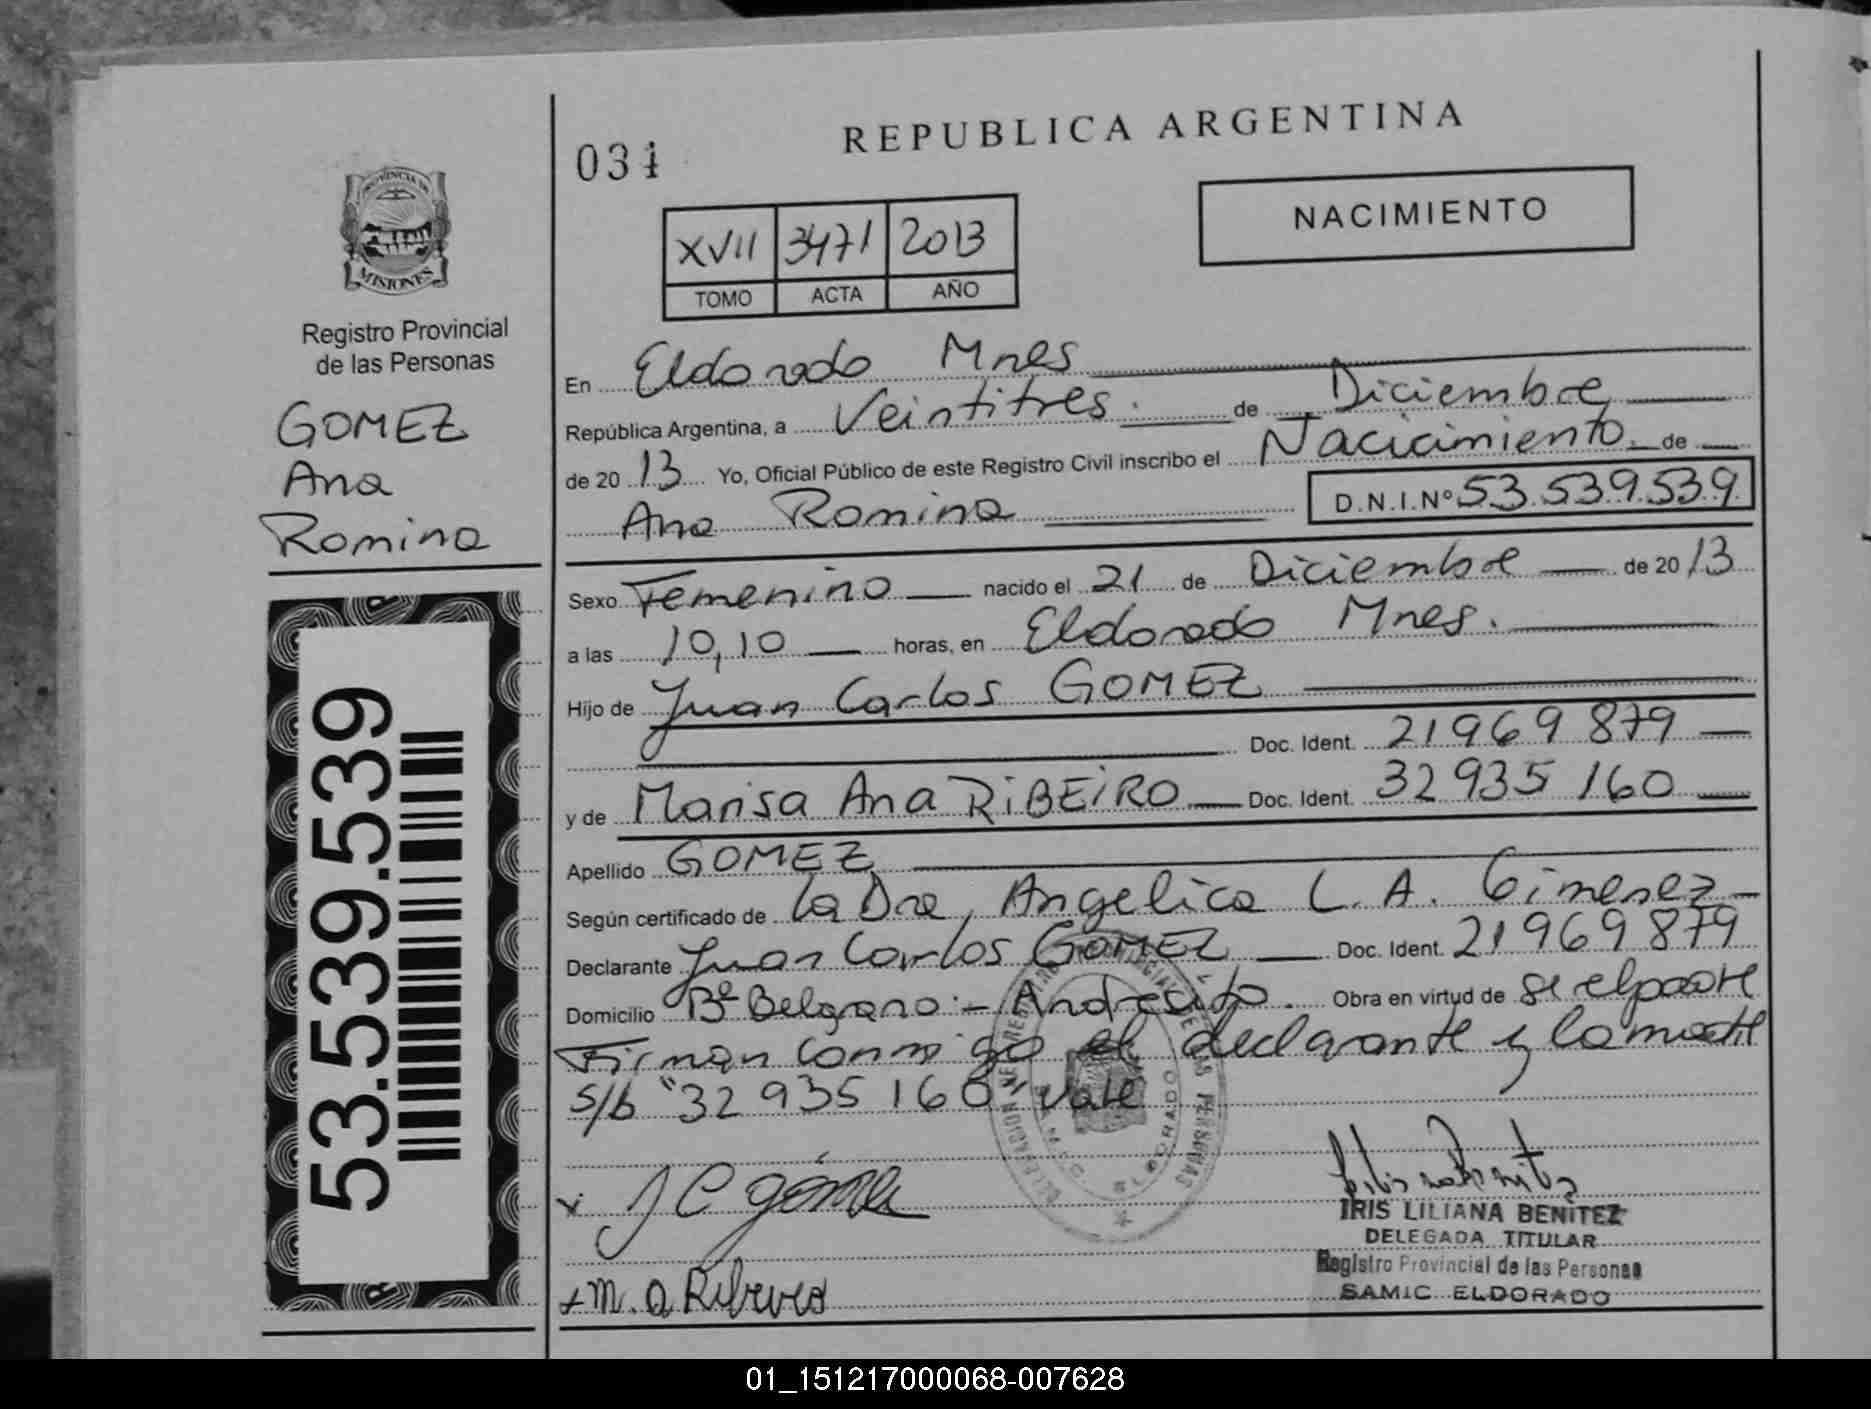 034
REPUBLICA ARGENTINA
NACIMIENTO
XVII 3471 2013
TOMO ACTA AÑO
PROVINCIA DE
MISIONES
Registro Provincial
de las Personas
GOMEZ
Ana
Romina
53.539.539
En Eldorado Mnes
República Argentina, a Veintitres. de Diciembre
de 2013 Yo, Oficial Público de este Registro Civil inscribo el Nacicimiento de
Ana Romina D.N.I.Nº 53.539.539
Sexo Femenino nacido el 21 de Diciembre de 2013
a las 10,10 horas, en Eldorado Mnes.
Hijo de Juan Carlos GOMEZ
Doc. Ident. 21969879
y de Marisa Ana RiBEiRO Doc. Ident. 32935160
Apellido GOMEZ
Según certificado de La Dra, Angelica L. A. Gimenez
Declarante Juan Carlos GOMEZ Doc. Ident. 21969879
Domicilio Bº Belgrano - Andresito. Obra en virtud de
Firman conmigo el declarante y la madre
s/b "32935160" vale
x J C Gómez
IRIS LILIANA BENITEZ
DELEGADA TITULAR
Registro Provincial de las Personas
SAMIC ELDORADO
x M. a Ribeiro
01_151217000068-007628